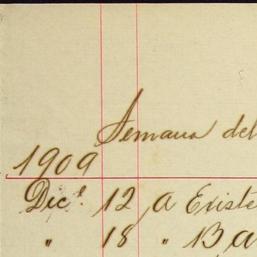 Semana del
1909
Dic.e 12 A Existe
" 18 " Ba